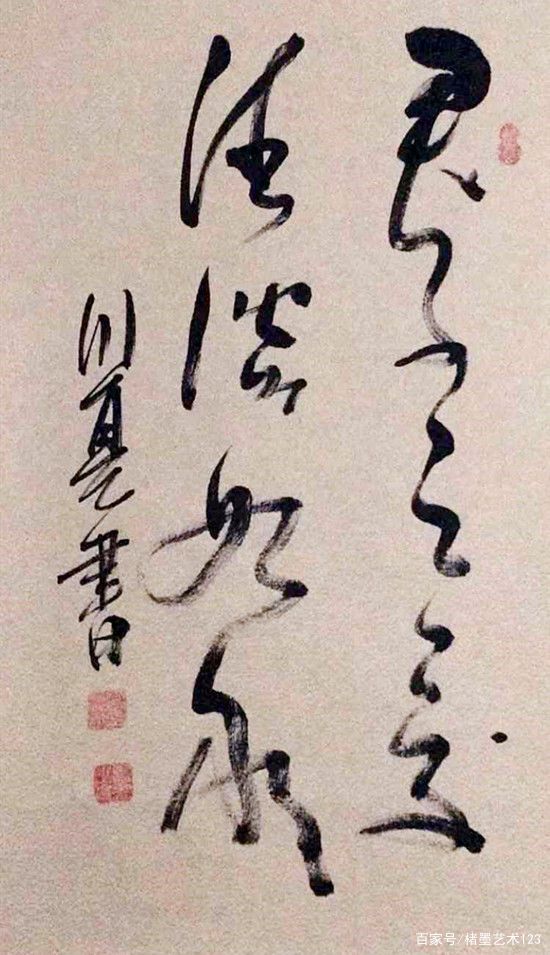 君子之交
清淡如水
書
百家号/楮墨艺术123